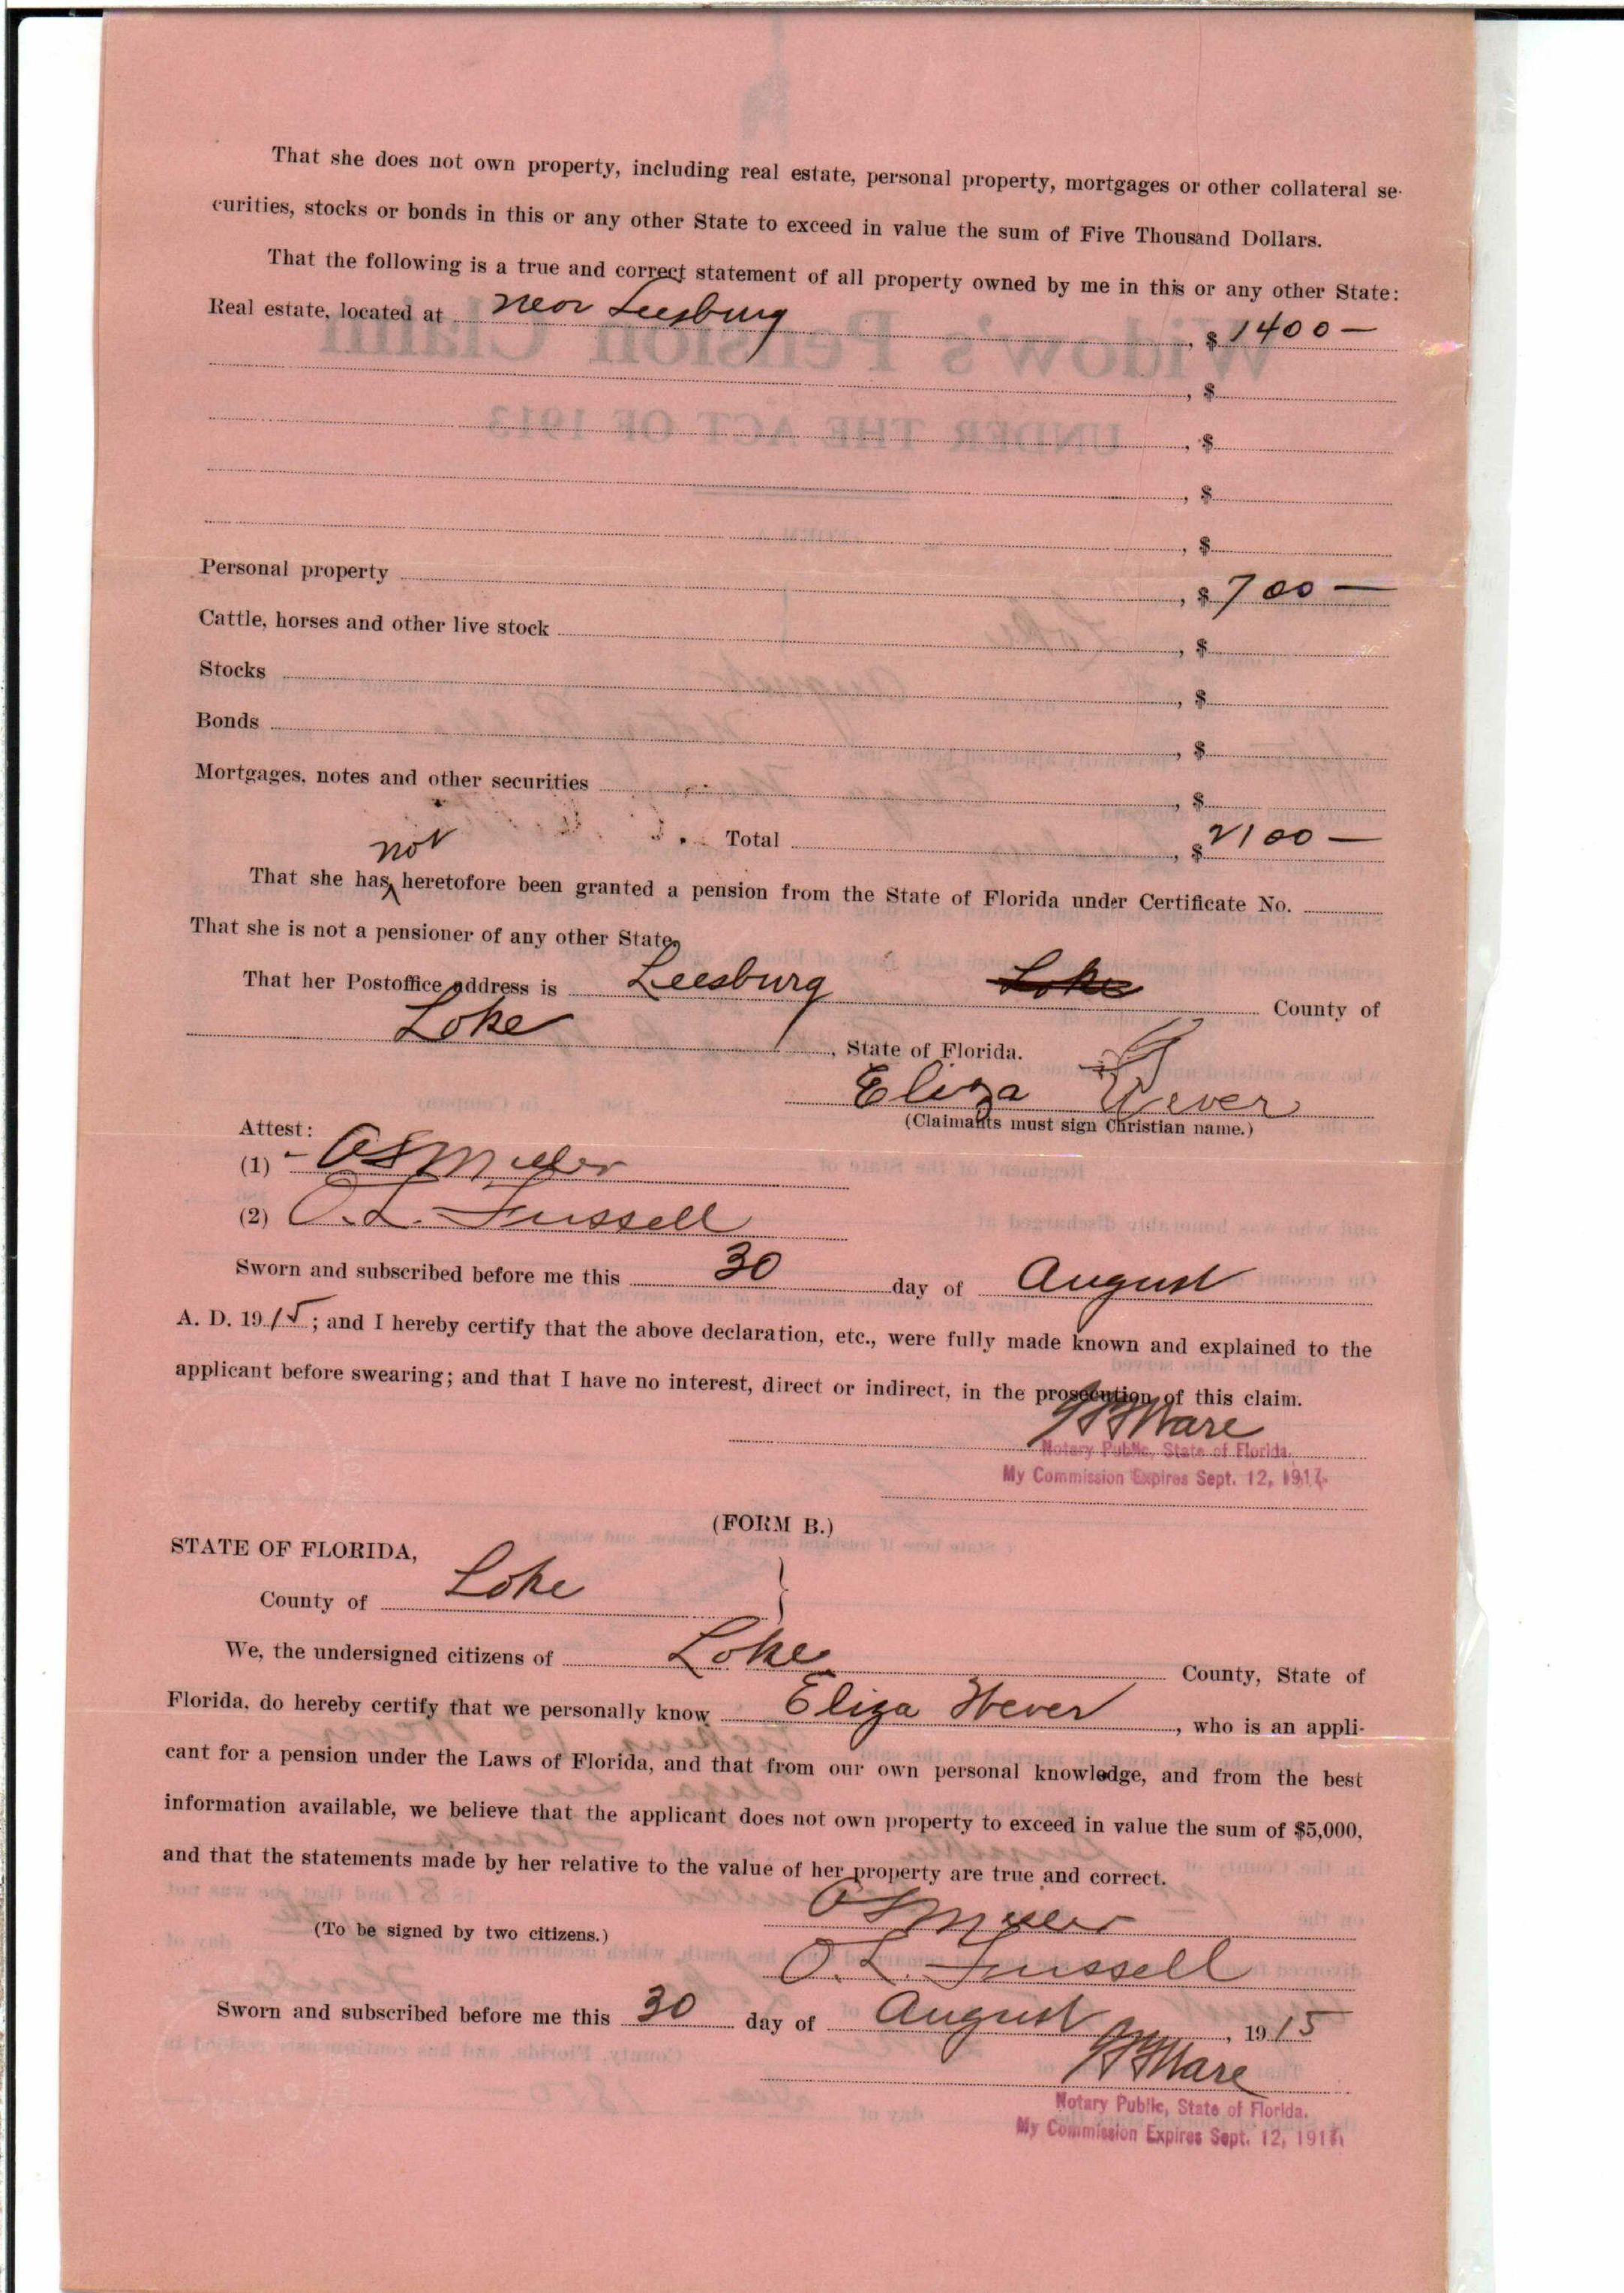 That she does not own property, including real estate, personal property, mortgages or other collateral se-
curities, stocks or bonds in this or any other State to exceed in value the sum of Five Thousand Dollars.
That the following is a true and correct statement of all property owned by me in this or any other State:
Real estate, located at near Leesburg, $ 1400 —
, $
, $
, $
, $
Personal property , $ 700 —
Cattle, horses and other live stock , $
Stocks , $
Bonds , $
Mortgages, notes and other securities , $
Total , $ 2100 —
not
That she has ^ heretofore been granted a pension from the State of Florida under Certificate No.
That she is not a pensioner of any other State.
That her Postoffice address is Leesburg Lake County of
Lake, State of Florida.
Eliza Wever
(Claimants must sign Christian name.)
Attest:
(1)
(2) O. L. Fussell
Sworn and subscribed before me this 30 day of August
A. D. 1915; and I hereby certify that the above declaration, etc., were fully made known and explained to the
applicant before swearing; and that I have no interest, direct or indirect, in the prosecution of this claim.
Ware
Notary Public, State of Florida.
My Commission Expires Sept. 12, 1917.
(FORM B.)
STATE OF FLORIDA,
County of Lake }
We, the undersigned citizens of Lake County, State of
Florida, do hereby certify that we personally know Eliza Wever, who is an appli-
cant for a pension under the Laws of Florida, and that from our own personal knowledge, and from the best
information available, we believe that the applicant does not own property to exceed in value the sum of $5,000,
and that the statements made by her relative to the value of her property are true and correct.
(To be signed by two citizens.)
O. L. Fussell
Sworn and subscribed before me this 30 day of August, 1915
Ware
Notary Public, State of Florida.
My Commission Expires Sept. 12, 1917.